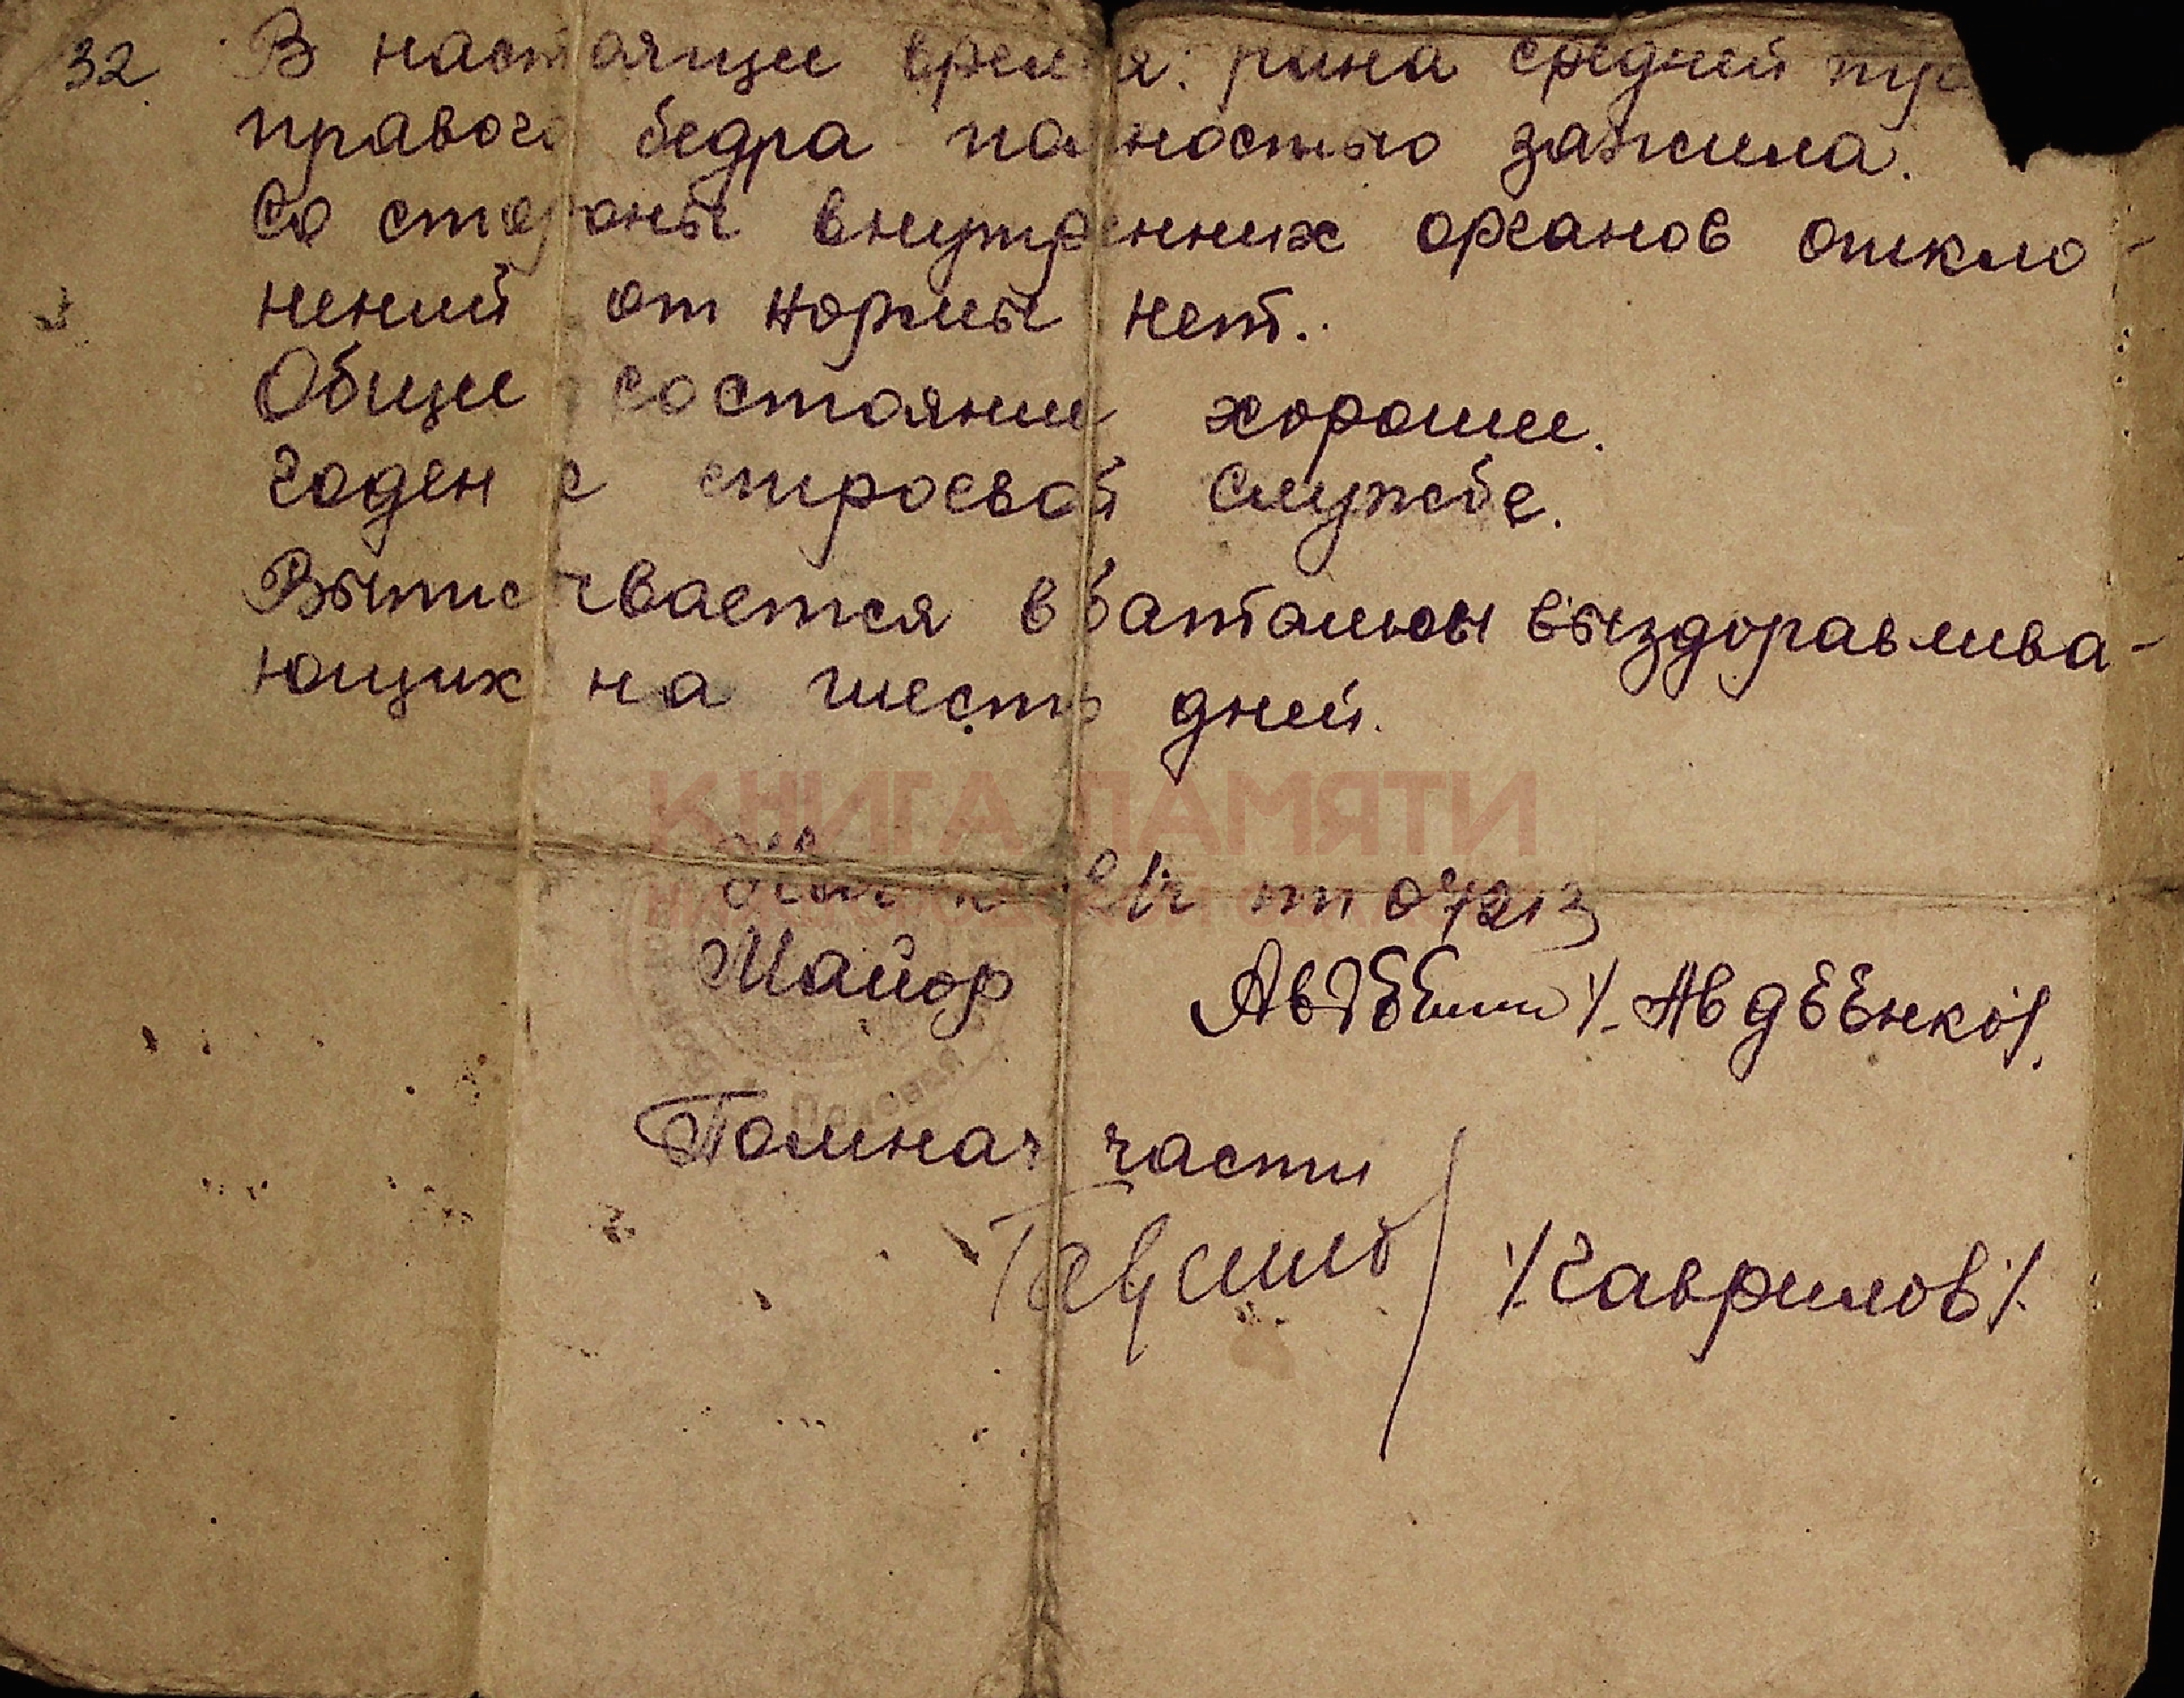 32. В настоящее время: рана средней тре
правого бедра полностью зажила.
Со стороны внутренних органов откло-
нений от нормы нет.
Общее состояние хорошее.
Годен к строевой службе.
Выписывается в батальон выздоравлива-
ющих на шесть дней.
КНИГА ПАМЯТИ
пп 04213
Майор Авдеенко /. Авдеенко /.
Полевая
Помнач части
/. Гаврилов /.